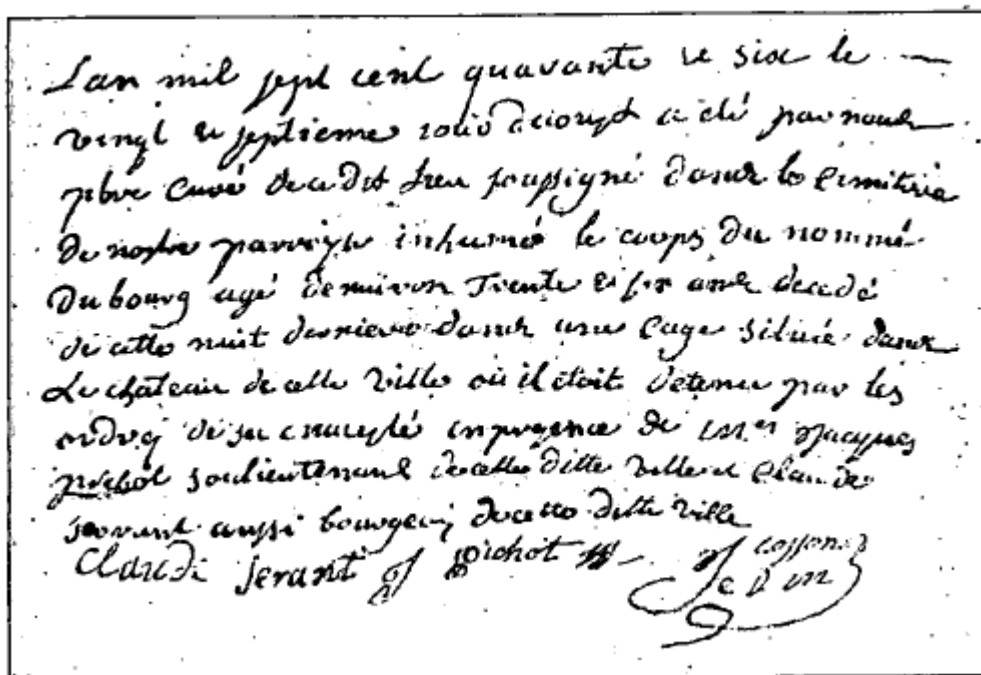 Lan mil sept cent quarante et six le
vingt et septieme jour daoust a eté par nous
pbre Curé de cedit Lieu soussigné dans le cimitiere
de nostre parroisse inhumé le corps du nommé
Dubourg agé denuiron Trente et six ans decedé
de cette nuit derniere dans une Cage située dans
Le chateau de cette Ville où il étoit detenu par les
ordres de sa en presence de Mes Jacques
pichot soulieutenant de cette ditte Ville et Claude
servant aussi bourgeois de cette ditte Ville
Claude Servant pichot Cosson